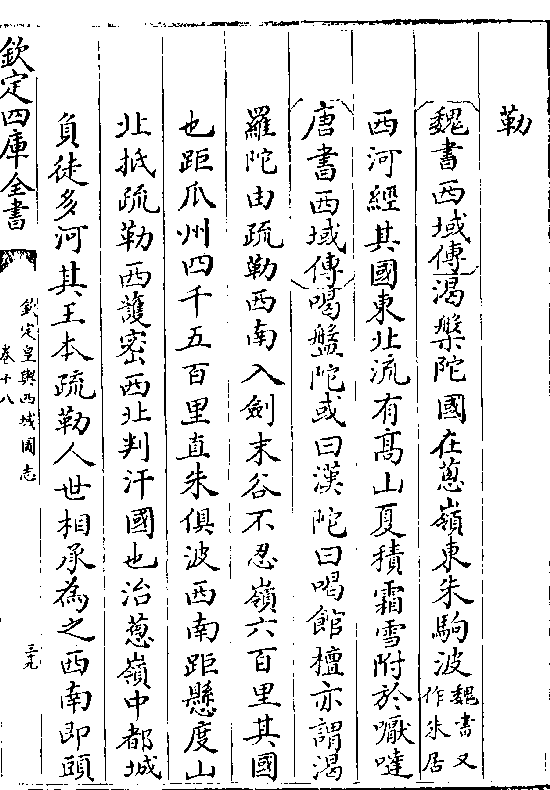 勒
魏書西域傳渴槃陀國在蔥嶺東朱駒波魏書又作朱居
西河經其國東北流有高山夏積霜雪附於嚈噠
唐書西域傳喝盤陀或曰漢陀曰喝館檀亦謂渴
羅陀由疏勒西南入劍末谷不忍嶺六百里其國
也距瓜州四千五百里直朱俱波西南距懸度山
北抵疏勒西護密西北判汗國也治蔥嶺中都城
負徒多河其王本疏勒人世相承為之西南即頭
欽定四庫全書
欽定皇輿西域圖志
卷十八
三十九